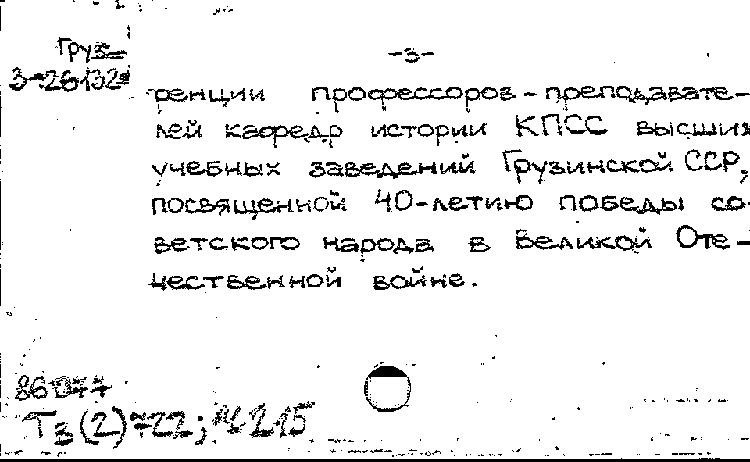 Груз-
-3-
3-26132
ренции профессоров-преподавате-
лей кафедр истории КПСС высших
учебных заведений Грузинской ССР,
посвященной 40-летию победы со-
ветского народа в Великой Оте-
чественной войне.
86077
Т3(2)722;